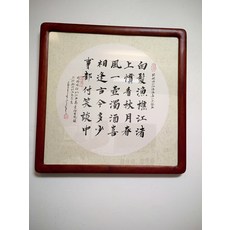 白髮漁樵江渚
上慣看秋月春
風一壺濁酒喜
相逢古今多少
事都付笑談中